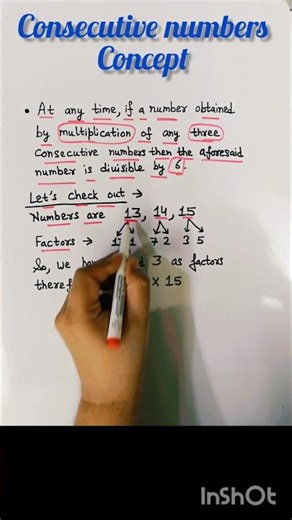 Consecutive numbers
Concept
• At any time, if a number obtained
by multiplication of any three
consecutive numbers then the aforesaid
number is divisible by 6.
Let's check out →
Numbers are 13, 14, 15
Factors → 13 1 7 2 3 5
So, we 3 as factors
X 15
InShOt